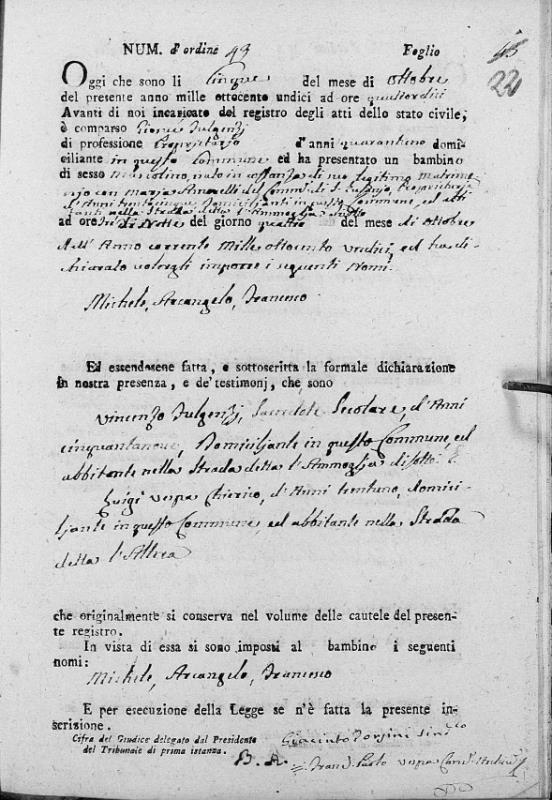 NUM. d'ordine 43 Foglio 45
220
Oggi che sono li Cinque del mese di Ottobre
del presente anno mille ottocento undici ad ore quattordici
Avanti di noi incaricato del registro degli atti dello stato civile,
è comparso Fulgenzj
di professione Proprietario d'anni quarantuno domi-
ciliante in questo Commune ed ha presentato un bambino
di sesso Mascolino, nato in costanza di suo legittimo matrimo-
njo con Maria del Comm.e di Proprietaria
d'Anni trentacinque, Domiciljanti in questo Commune, ed abi-
tanti nella Strada detta l'Ammazzlja di sotto
ad ore tre di Notte del giorno quattro del mese di Ottobre
dell'Anno corrente Mille ottocento undici, ed ha di-
chiarato volergli imporre i seguenti Nomi.
Michele, Arcangelo, Francesco
Ed essendosene fatta, e sottoscritta la formale dichiarazione
in nostra presenza, e de' testimonj, che sono
Vincenzo Fulgenzj, Sacerdote Secolare, d'Anni
cinquantanove, Domiciljante in questo Commune, ed
abbitante nella Strada detta l'Ammazzlja di sotto E
Luigi Vespa Chierico, d'Anni trentuno, domici-
ljante in questo Commune, ed abbitante nella Strada
detta
che originalmente si conserva nel volume delle cautele del presen-
te registro.
In vista di essa si sono imposti al bambino i seguenti
nomi:
Michele, Arcangelo, Francesco
E per esecuzione della Legge se n'è fatta la presente in-
scrizione.
Cifra del Giudice delegato dal Presidente
del Tribunale di prima istanza.
Giacinto Dorsini Sindaco
B. A. Vespa